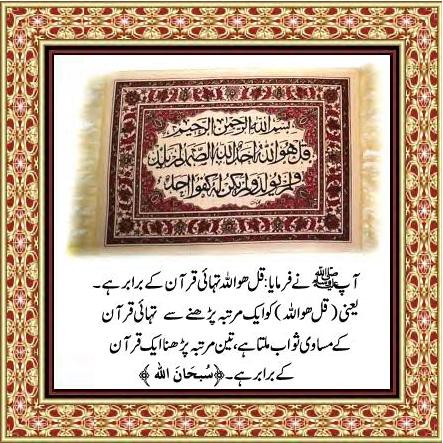 بسم الله الرحمن الرحيم
قل هو الله احد الله الصمد لم يلد
ولم يولد ولم يكن له كفوا احد
آپ ﷺ نے فرمایا: قل ھو اللہ تہائی قرآن کے برابر ہے۔
یعنی (قل ھو اللہ) کو ایک مرتبہ پڑھنے سے تہائی قرآن
کے مساوی ثواب ملتا ہے، تین مرتبہ پڑھنا ایک قرآن
کے برابر ہے۔ ﴿سُبحَانَ الله﴾